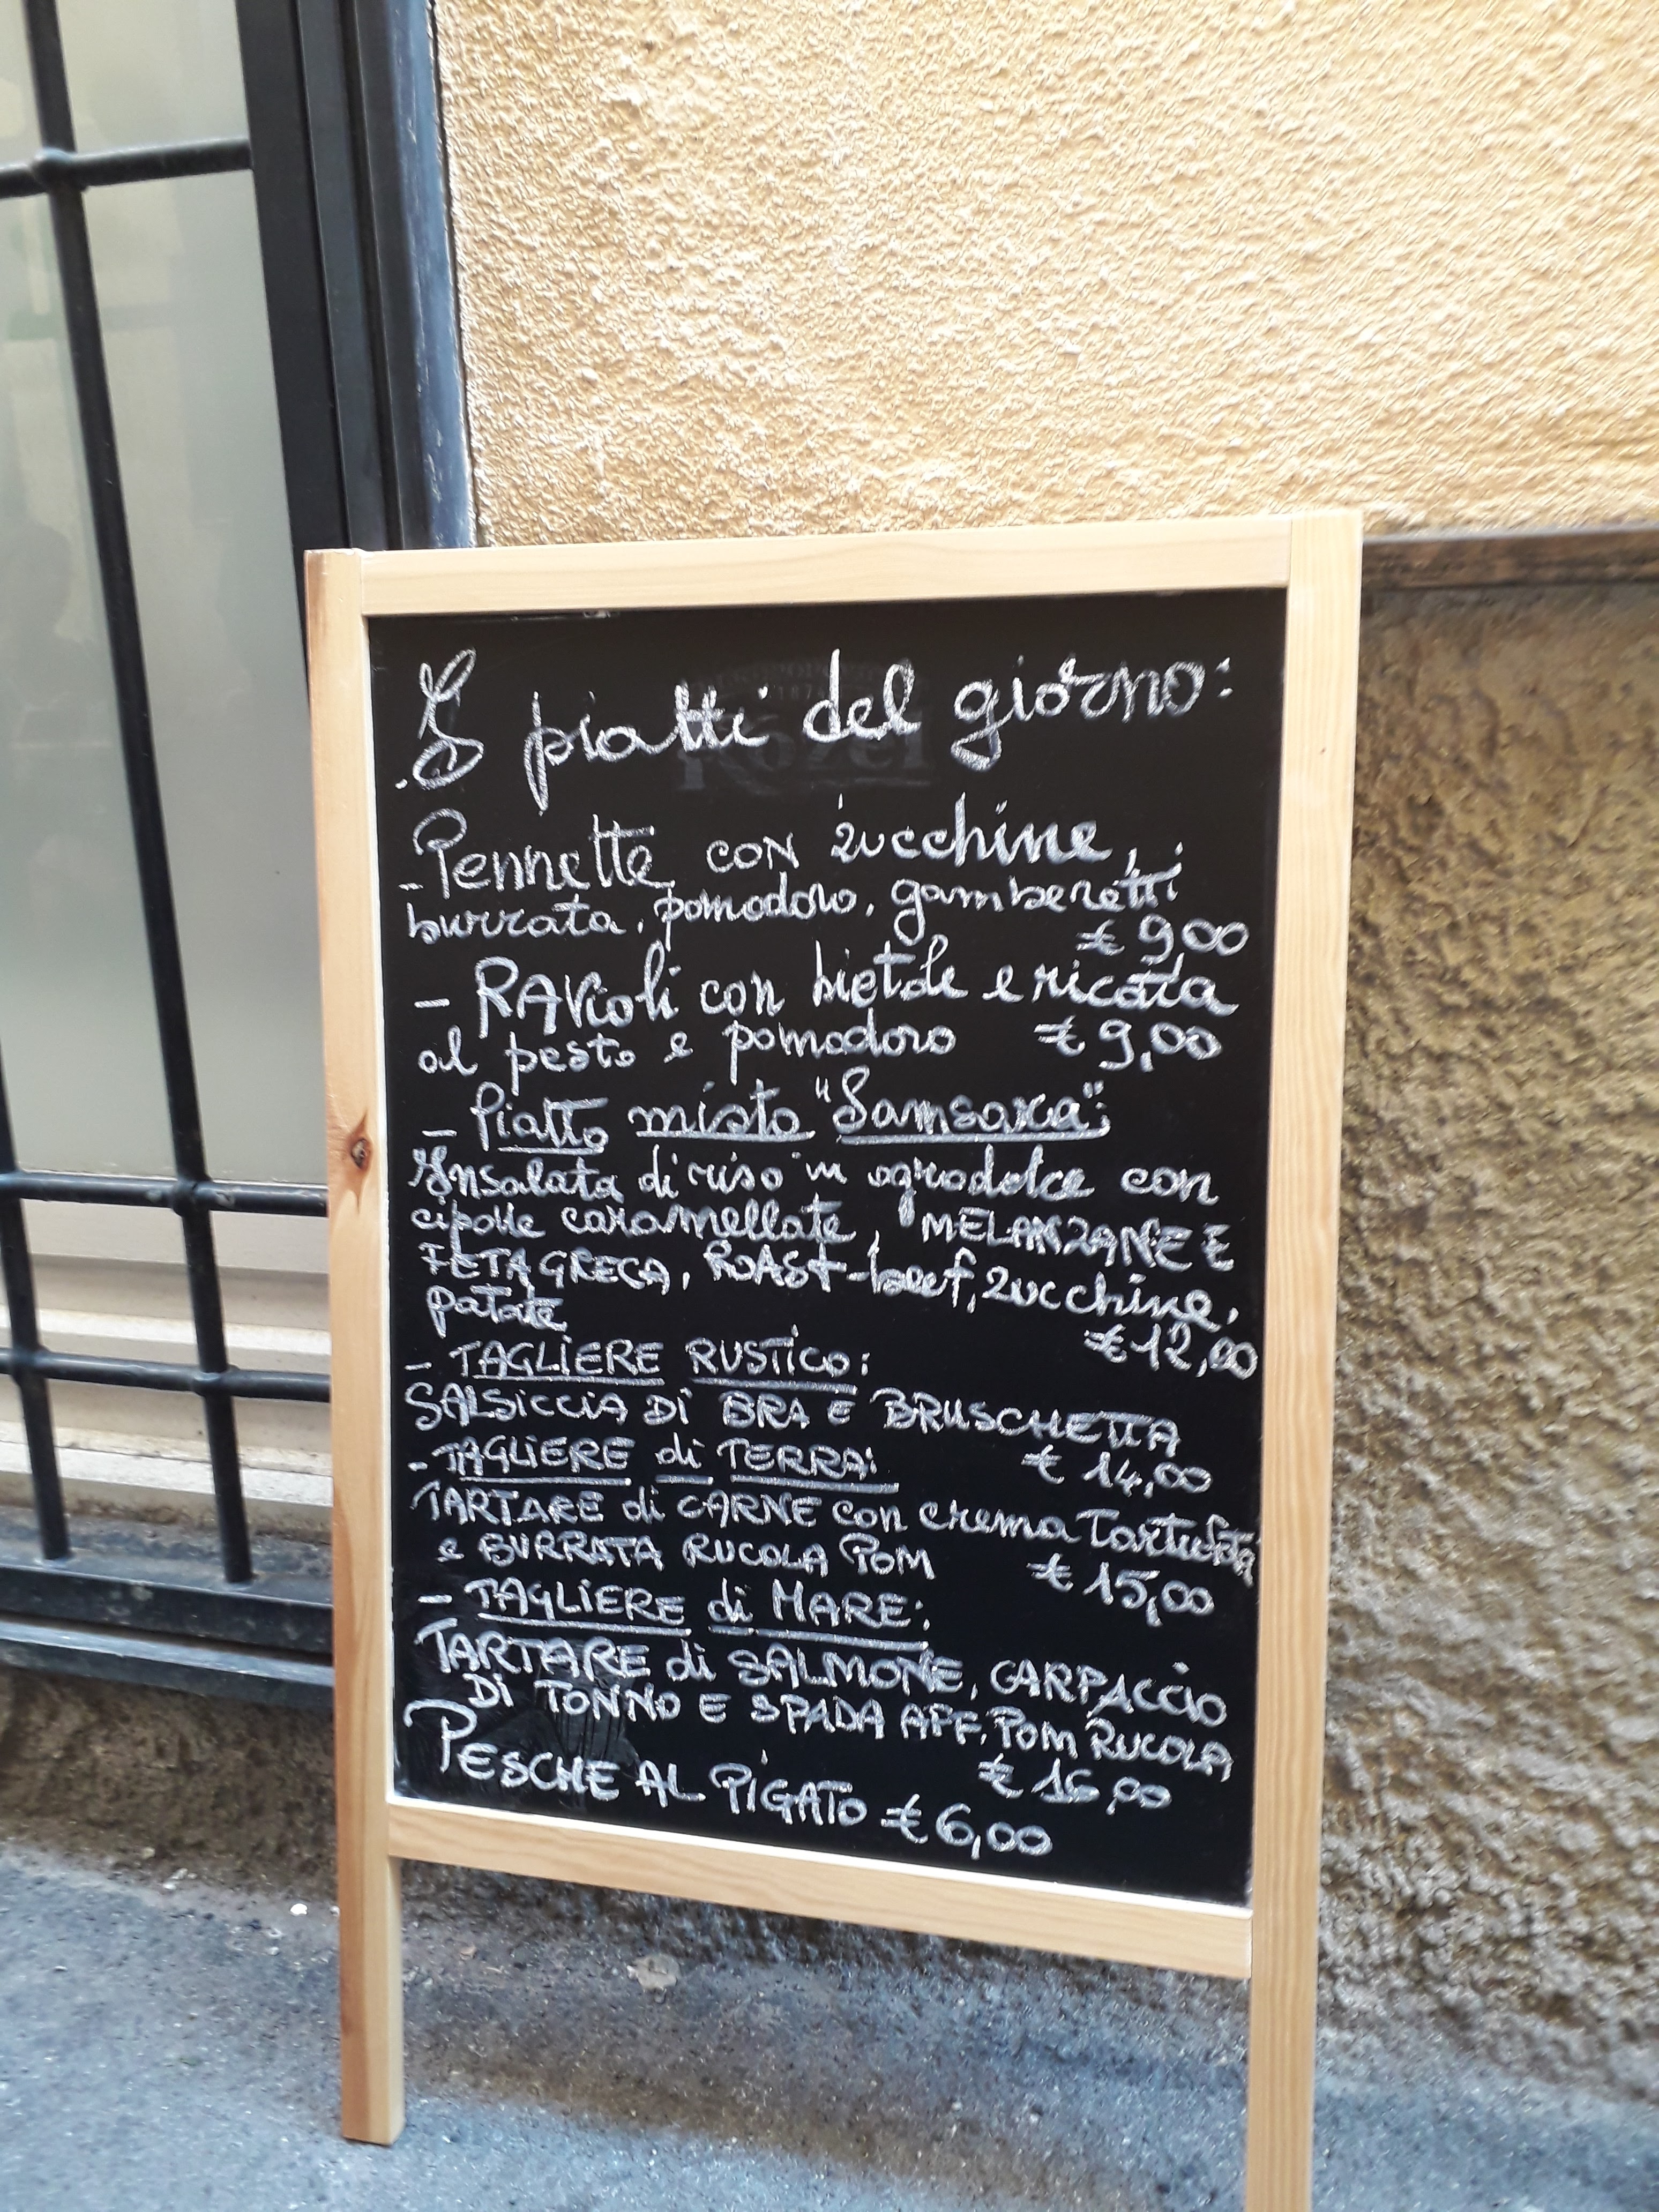 I piatti del giorno:
- Pennette con zucchine,
burrata, pomodoro, gamberetti
€ 9 00
- RAVioli con bietole e ricotta
al pesto e pomodoro € 9,00
- Piatto misto "Samsara":
Insalata di riso in agrodolce con
cipolle caramellate, MELANZANE E
FETA GRECA, ROAST-beef, zucchine,
patate
€ 12,00
- TAGLIERE RUSTICO:
SALSICCIA DI BRA E BRUSCHETTA
€ 14,00
- TAGLIERE di TERRA:
TARTARE di CARNE con crema Tartufata
e BURRATA RUCOLA POM € 15,00
- TAGLIERE di MARE:
TARTARE di SALMONE, CARPACCIO
DI TONNO E SPADA AFF. POM RUCOLA
€ 16,00
PESCHE AL PIGATO € 6,00